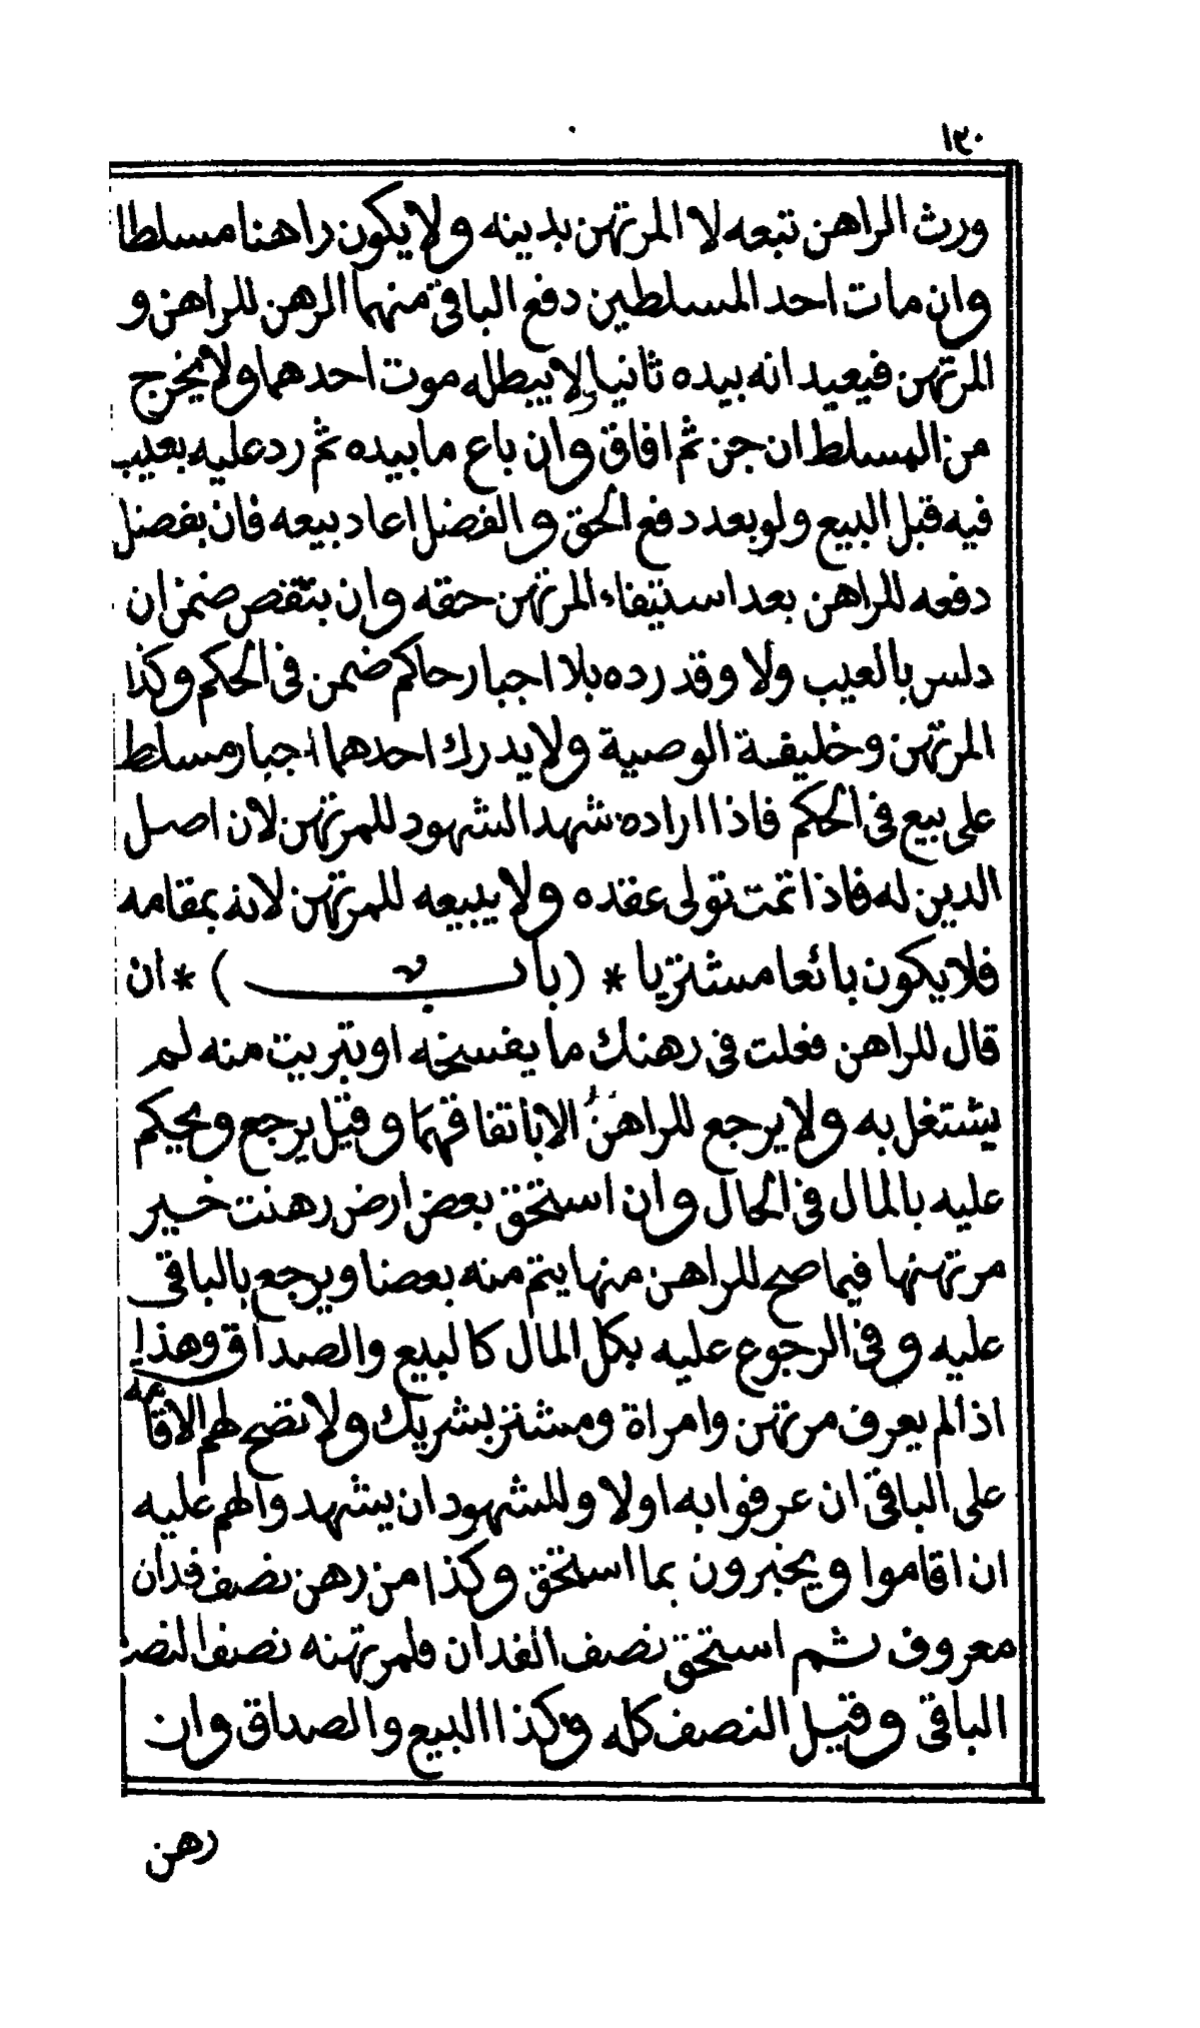 ١٢٠
ورث الراهن تبعه لا المرتهن بدينه ولا يكون راهنا مسلطا
وان مات احد المسلطين دفع الباقى منهما الرهن للراهن و
المرتهن فيعيد انه بيده ثانيا ولا يبطله موت احدهما ولا يخرج
من المسلط ان جن ثم افاق وان باع ما بيده ثم رد عليه بعيب
فيه قبل البيع ولو بعد دفع الحق والفضل اعاد بيعه فان بفضل
دفعه للراهن بعد استيفاء المرتهن حقه وان بنقص ضمن ان
دلس بالعيب ولا وقد رده بلا اجبار حاكم ضمن فى الحكم وكذا
المرتهن وخليفة الوصية ولا يدرك احدهما اجبار مسلط
على بيع فى الحكم فاذا اراده شهد الشهود للمرتهن لان اصل
الدين له فاذا تمت تولى عقده ولا يبيعه للمرتهن لانه بمقامه
فلا يكون بائعا مشتريا * (باب) * ان
قال للراهن فعلت فى رهنك ما يفسخه او تبريت منه لم
يشتغل به ولا يرجع للراهن الا باتفاقهما وقيل يرجع ويحكم
عليه بالمال فى الحال وان استحق بعض ارض رهنت خير
مرتهنها فيما صح للراهن منها يتم منه بعضا ويرجع بالباقى
عليه وفى الرجوع عليه بكل المال كالبيع والصداق وهذا
اذا لم يعرف مرتهن وامراة ومشتر بشريك ولا تصح لهم الاقامة
على الباقى ان عرفوا به اولا وللشهود ان يشهدوا لهم عليه
ان اقاموا ويخبرون بما استحق وكذا من رهن نصف فدان
معروف ثم استحق نصف الفدان فلمرتهنه نصف النصف
الباقى وقيل النصف كله وكذا البيع والصداق وان
رهن